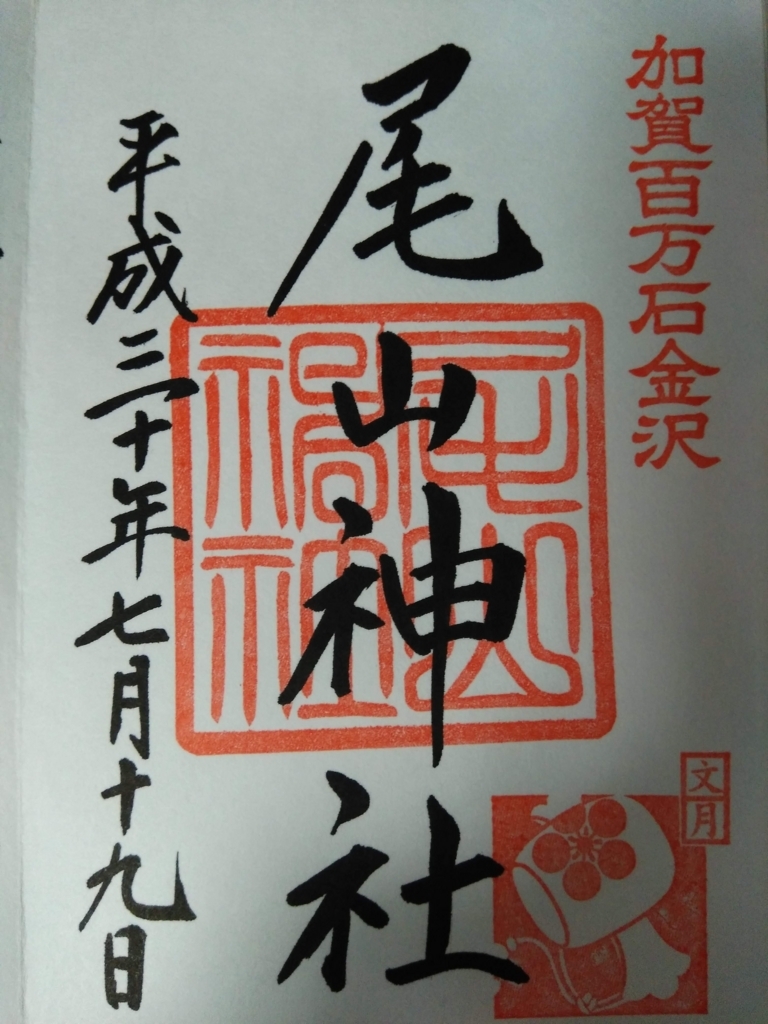 加賀百万石金沢
文月
尾山神社
尾山神社
平成三十年七月十九日